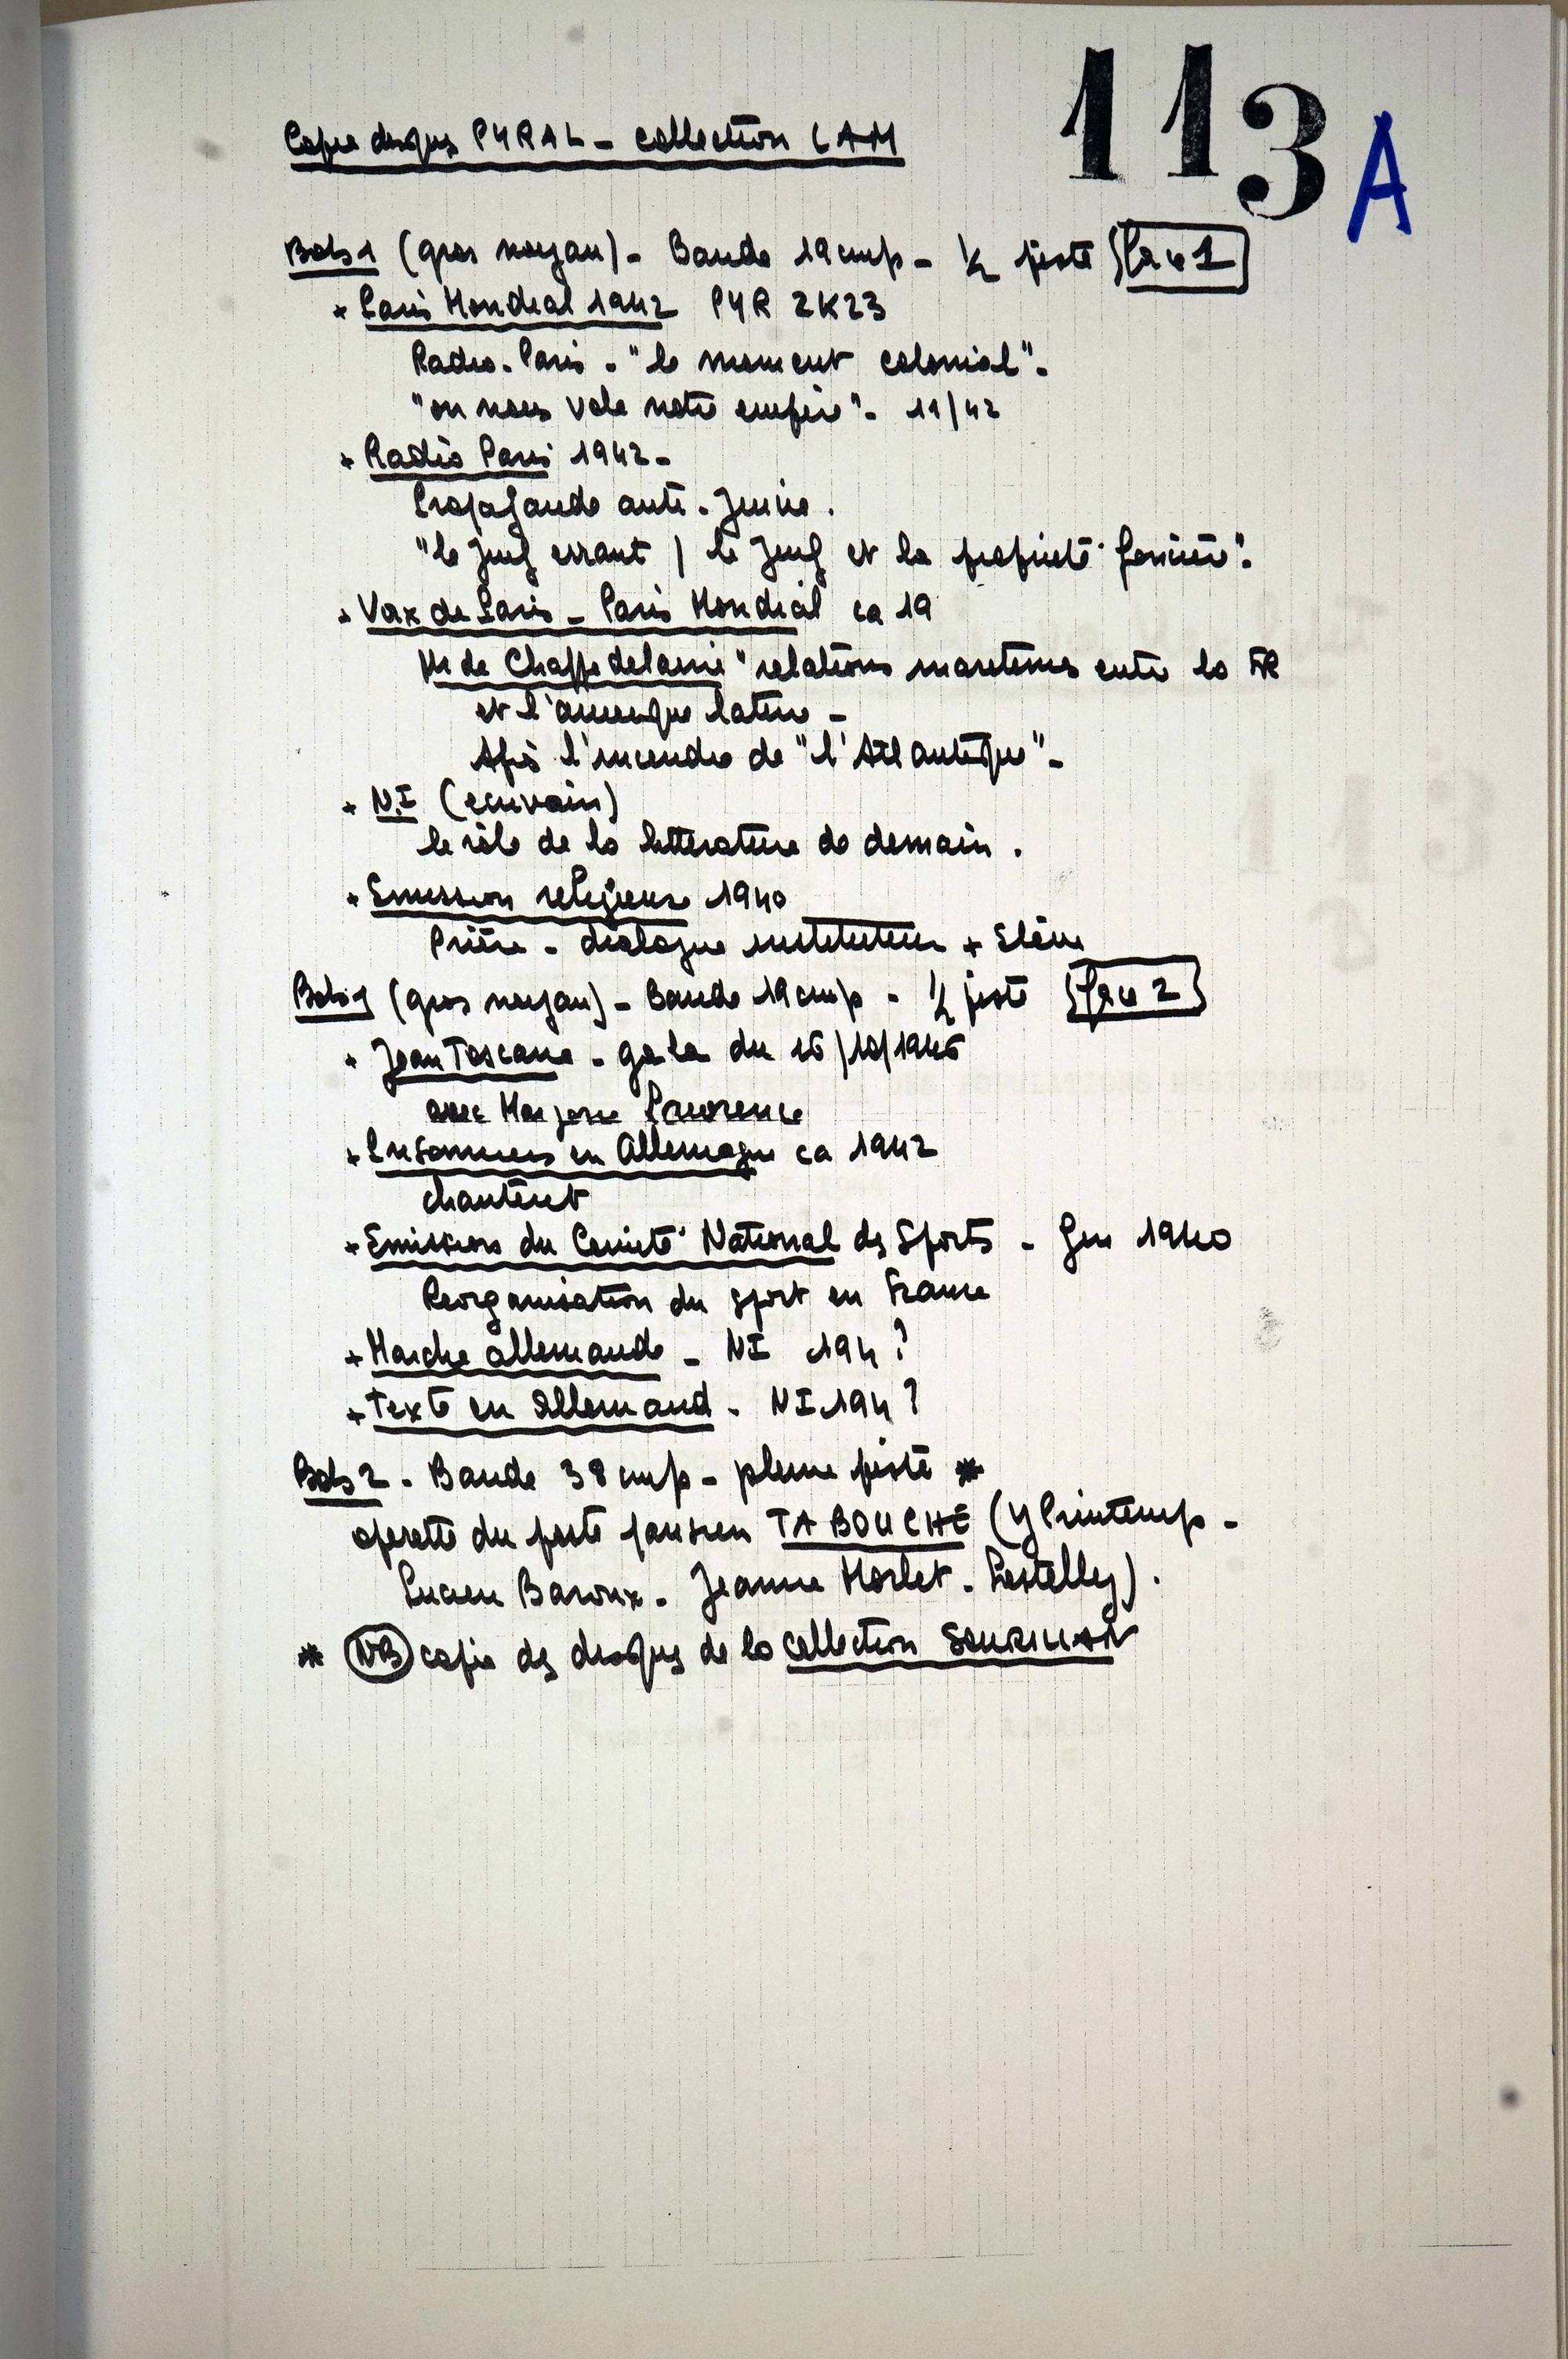 113 A
Copie disques PYRAL - collection LAM
Bob 1 (gros noyau) - Bande 19 cm/s - 1/2 piste Face 1
+ Paris Mondial 1942 PYR 2K23
Radio-Paris - "le moment colonial" -
"on nous vole notre empire" - 11/42
+ Radio Paris 1942 -
Propagande anti-Juive.
"le Juif errant / le Juif et la propriété foncière".
+ Voix de Paris - Paris Mondial ca 19
Mr de Chappedelaine "relations maritimes entre la FR
et l'amérique latine -
Après l'incendie de "l'Atlantique" -
+ N.I (ecrivain)
le rôle de la litterature de demain.
+ Emission religieuse 1940
Prière - dialogue instituteur + Elève
Bob 1 (gros noyau) - Bande 19 cm/s - 1/2 piste Face 2
+ Jean Toscane - gala du 16/10/1946
avec Marjorie Lawrence
+ Prisonniers en Allemagne ca 1942
chantent
+ Emission du Comité National des Sports - 1940
Reorganisation du sport en France
+ Marche allemande - NI 194?
+ Texte en allemand - NI 194?
Bob 2 - Bande 38 cm/s - pleine piste *
operette du poste parisien TA BOUCHE (Y Printemps -
Lucien Baroux - Jeanne Morlet - Lestelly).
* NB copie des disques de la collection